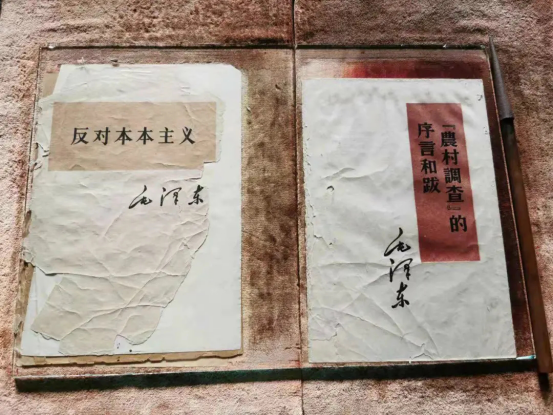 反对本本主义
毛泽东
「農村調查」的
序言和跋
毛泽东